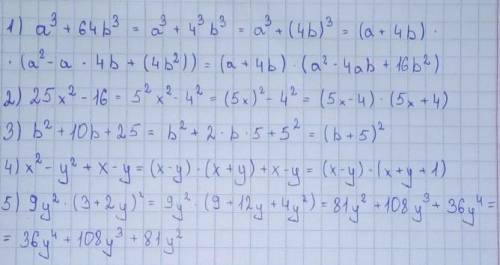 1) a³ + 64b³ = a³ + 4³b³ = a³ + (4b)³ = (a + 4b) ·
· (a² - a · 4b + (4b²)) = (a + 4b) · (a² - 4ab + 16b²)
2) 25x² - 16 = 5²x² - 4² = (5x)² - 4² = (5x - 4) · (5x + 4)
3) b² + 10b + 25 = b² + 2 · b · 5 + 5² = (b + 5)²
4) x² - y² + x - y = (x - y) · (x + y) + x - y = (x - y) · (x + y + 1)
5) 9y² · (3 + 2y)² = 9y² · (9 + 12y + 4y²) = 81y² + 108y³ + 36y⁴ =
= 36y⁴ + 108y³ + 81y²